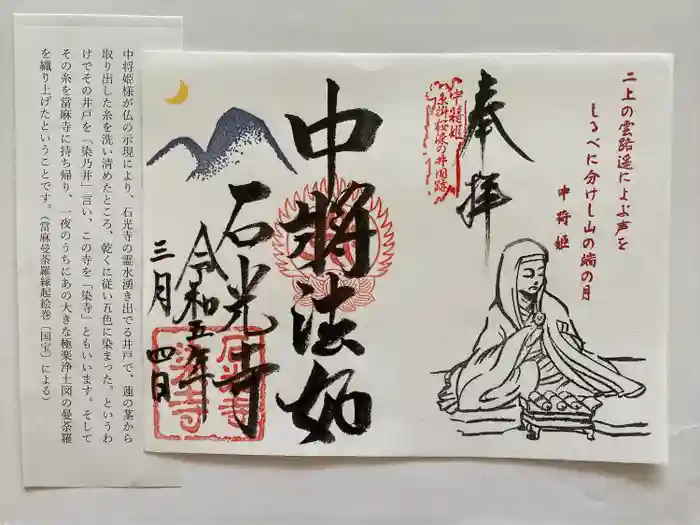 二上の雲路遥によぶ声を
しるべに分けし山の端の月
中将姫
奉拝
中将姫
糸掛桜染の井旧跡
中將法如
石光寺
令和五年
三月四日
中将姫様が仏の示現により、石光寺の霊水湧き出でる井戸で、蓮の茎から
取り出した糸を洗い清めたところ、乾くに従い五色に染まった。というわ
けでその井戸を「染乃井」言い、この寺を「染寺」ともいいます。そして
その糸を當麻寺に持ち帰り、一夜のうちにあの大きな極楽浄土図の曼荼羅
を織り上げたということです。（當麻曼荼羅縁起絵巻〔国宝〕による）